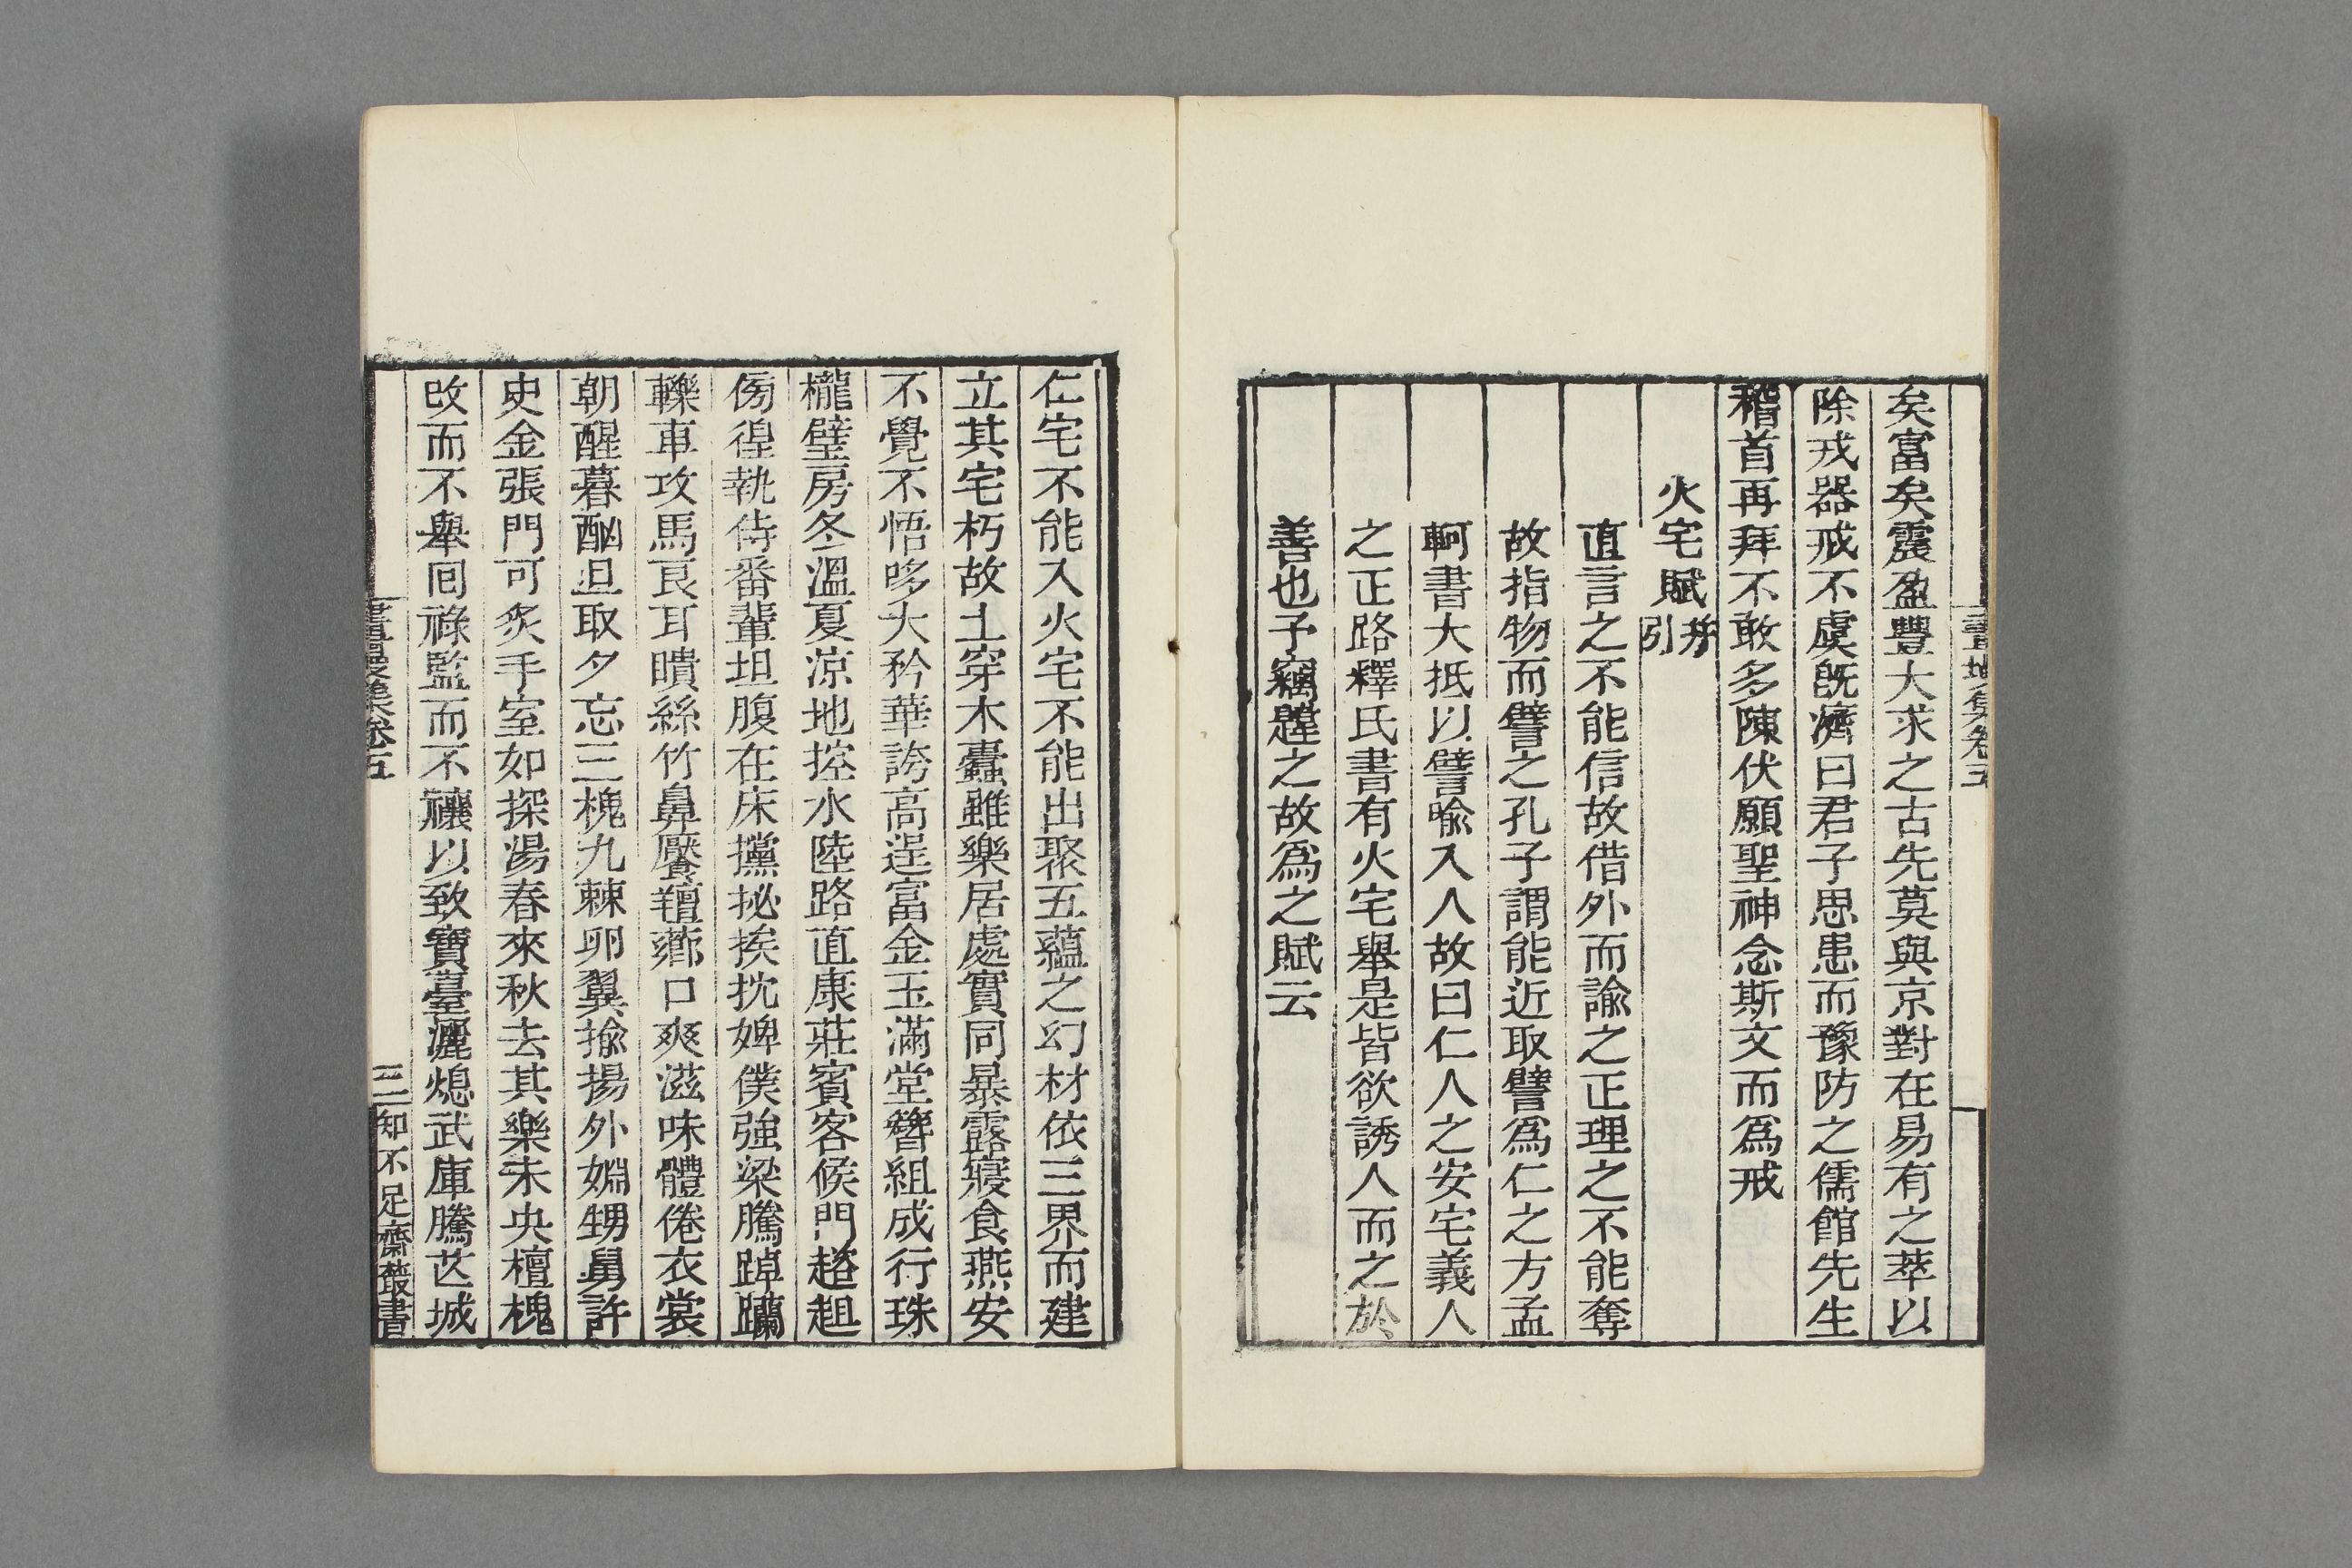 矣富矣震盈豐大求之古先莫與京對在易有之萃以
除戎器戒不虞旣濟曰君子思患而豫防之儒館先生
稽首再拜不敢多陳伏願聖神念斯文而爲戒
火宅賦幷引
直言之不能信故借外而諭之正理之不能奪
故指物而譬之孔子謂能近取譬爲仁之方孟
軻書大抵以譬喻入人故曰仁人之安宅義人
之正路釋氏書有火宅舉是皆欲誘人而之於
善也予竊韙之故爲之賦云
仁宅不能入火宅不能出聚五蘊之幻材依三界而建
立其宅朽故土穿木蠹雖樂居處實同暴露寢食燕安
不覺不悟哆大矜華誇高逞富金玉滿堂簪組成行珠
櫳璧房冬溫夏涼地控水陸路直康莊賓客候門趦趄
傍徨執侍番輩坦腹在床攩挱挨抌婢僕強梁騰踔躪
轢車攻馬良耳聵絲竹鼻饜羶薌口爽滋味體倦衣裳
朝酲暮酗旦取夕忘三槐九棘卵翼揄揚外婣甥舅許
史金張門可炙手室如探湯春來秋去其樂未央檀槐
改而不舉囘祿監而不禳以致寶臺灑熄武庫騰芒城
三
知不足齋叢書